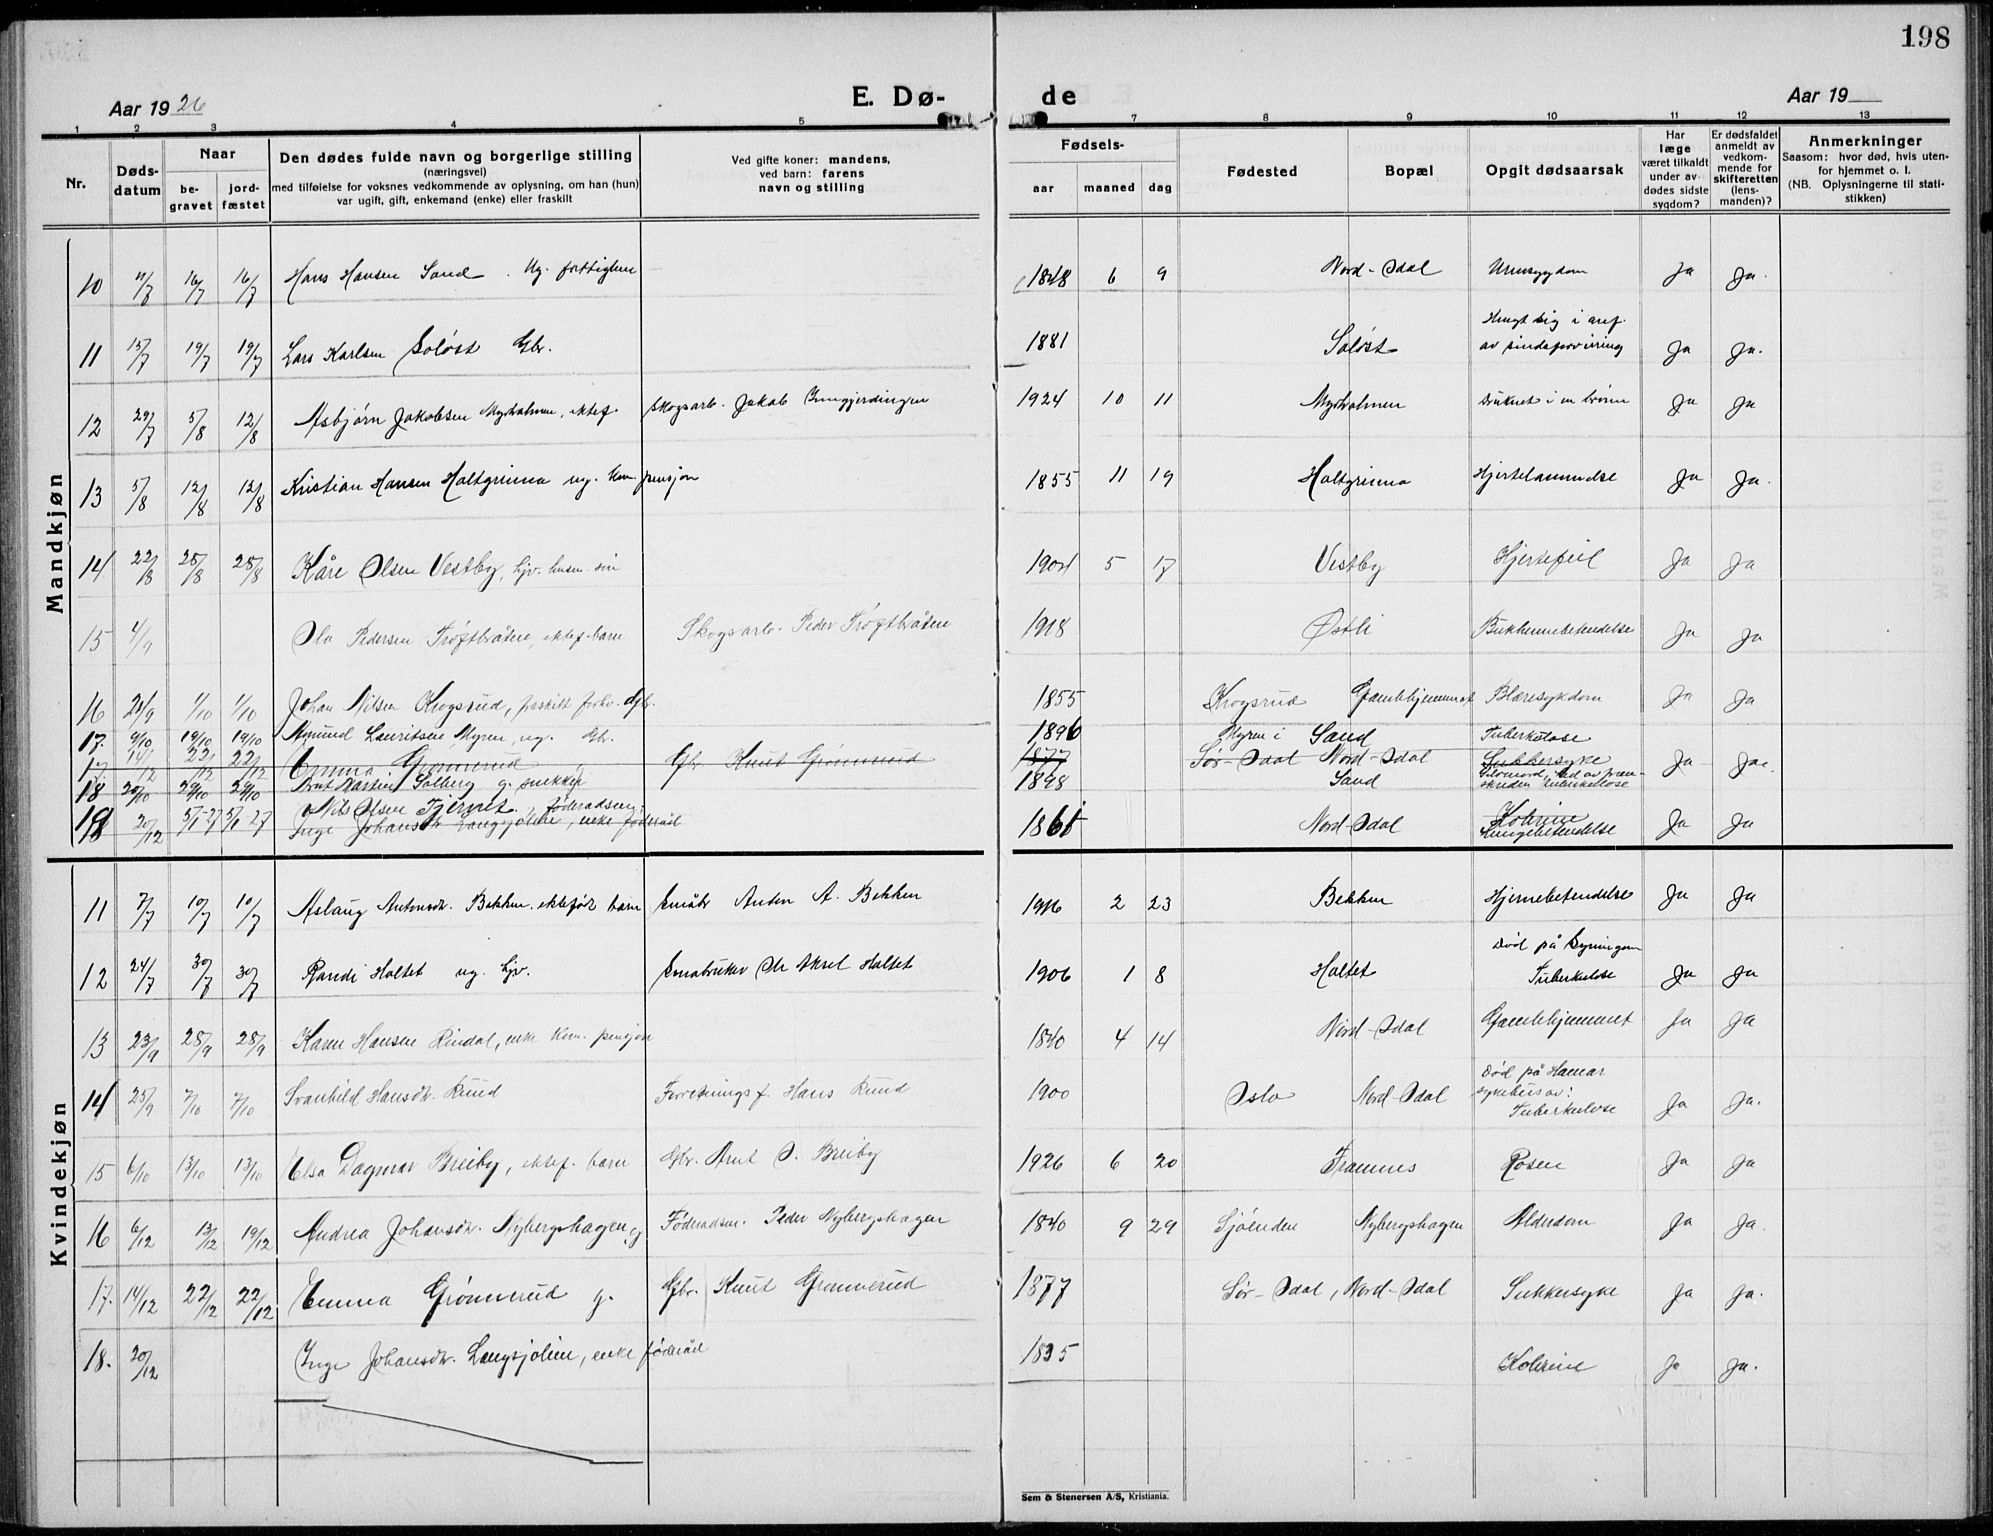 198
Aar 1926
E. Dø-
de
Aar 19
1 2 3 4 5 7 8 9 10 11 12 13
Nr.
Døds-
datum
Naar
be-
gravet
jord-
fæstet
Den dødes fulde navn og borgerlige stilling
(næringsvei)
med tilføielse for voksnes vedkommende av oplysning, om han (hun)
var ugift, gift, enkemand (enke) eller fraskilt
Ved gifte koner: mandens,
ved barn: farens
navn og stilling
Fødsels-
aar maaned dag
Fødested
Bopæl
Opgit dødsaarsak
Har
læge
været tilkaldt
under av-
dødes sidste
sygdom?
Er dødsfaldet
anmeldt av
vedkom-
mende for
skifteretten
(lens-
manden)?
Anmerkninger
Saasom: hvor død, hvis uten-
for hjemmet o. l.
(NB. Oplysningerne til stati-
stikken)
Mandkjøn
10 16/7 16/7 Hans Hansen Sand. Ug. 1848 6 9 Nord-Odal Ja Ja.
11 15/7 19/7 19/7 Lars Karlsen Soløst Gbr. 1881 Soløst Hengt sig i anf.
av sindsforvirring Ja Ja.
12 29/7 5/8 12/8 Asbjørn Jakobsen ektef. Skogsarb. Jakob 1924 10 11 druknet i en brønn Ja Ja
13 5/8 12/8 12/8 Kristian Hansen Holtgrinna ug. kom. pensjon 1855 11 19 Holtgrinna Hjertelammelse Ja Ja.
14 22/8 28/8 28/8 Kåre Olsen Vestby, 1904 5 17 Vestby Hjertefeil Ja Ja
15 4/9 Ola Pedersen Trøftbråten, ektef. barn Skogsarb. Peder Trøftbråten 1918 Østli Bukhinnebetendelse Ja Ja
16 1/10 1/10 Johan Nilsen Krogsrud, fraskilt forhv. Gbr. 1855 Krogsrud Gamlehjemmet Blæresykdom Ja Ja
17. 9/10 19/10 19/10 Amund Lauritsen Myren, ug. Gbr. 1896 Myren i Sand Tuberkulose
17 14/12 22/12 22/12 Emma Grønnerud Gbr. Knut Grønnerud 1877 Sør-Odal Nord-Odal Sukkersyke Ja Ja.
18 20/10 29/10 29/10 Martin Solberg g. snekker 1898 Sand
skriden tuberkulose
Nils Olsen Tjernet, føderadsm.
18 20/12 5/1-27 5/1-27 Inge Johansdtr. Langsjølien, enke føderåd 1861 Nord-Odal Kolerine
Lungebetendelse Ja Ja
Kvindekjøn
11 7/7 10/7 10/7 Aslaug Antonsdr. Bekken. ektefødt barn Småbr Anton A. Bekken 1916 2 23 Bekken Hjernebetendelse Ja Ja
12 24/7 30/7 30/7 Randi Holtet ug. hjv. Småbruker Aksel Holtet 1906 1 8 Holtet Død på
Tuberkulose Ja Ja
13 23/9 28/9 28/9 Karen Hansen Rindal, enke kom. pensjon 1840 4 14 Nord-Odal Gamlehjemmet Ja Ja
14 25/9 7/10 7/10 Svanhild Hansdtr. Ruud Forretningsf. Hans Ruud 1900 Oslo Nord-Odal Død på Hamar
sykehus av:
Tuberkulose Ja Ja.
15 6/10 13/10 13/10 Elsa Dagmar Breiby, ektef. barn Gbr. Arnt O. Breiby 1926 6 20 Framnes Rosen Ja Ja
16 6/12 13/12 19/12 Andrea Johansdtr. Nybergshagen, g Føderadsm. Peder Nybergshagen 1840 9 29 Sjøenden Nybergshagen Alderdom Ja Ja.
17. 14/12 22/12 22/12 Emma Grønnerud g. Gbr. Knut Grønnerud 1877 Sør-Odal, Nord-Odal Sukkersyke Ja Ja.
18. 20/12 Inge Johansdtr. Langsjølien, enke føderåd 1835 Kolerine Ja Ja.
Sem & Stenersen A/S, Kristiania.